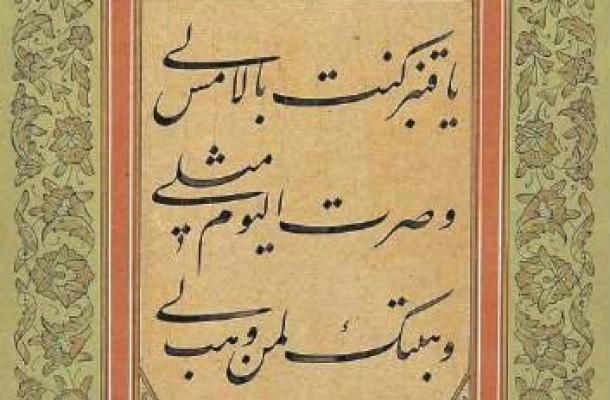 یا قنبر کنت بالامس لی
و صرت الیوم مثلی
وهبتک لمن وهبک لی